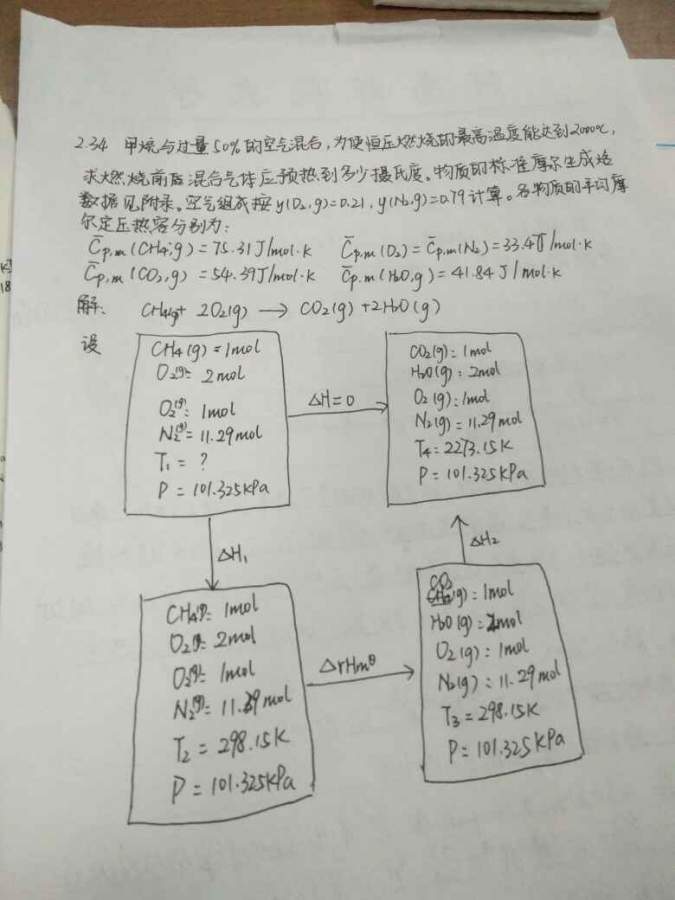 2.34 甲烷与过量50%的空气混合,为使恒压燃烧的最高温度能达到2000℃,
求燃烧前 混合气体应预热到多少摄氏度。物质的标准摩尔生成焓
数据见附录。空气组成按y(O₂,g)=0.21,y(N₂,g)=0.79计算。各物质的平均摩
尔定压热容分别为:
C̄p,m(CH₄,g)=75.31J/mol·K C̄p,m(O₂)=C̄p,m(N₂)=33.47J/mol·K
C̄p,m(CO₂,g)=54.39J/mol·K C̄p,m(H₂O,g)=41.84J/mol·K
解: CH₄(g)+ 2O₂(g) → CO₂(g)+2H₂O(g)
设
CH₄(g)=1mol
O₂(g)=2mol
O₂(g)=1mol
N₂(g)=11.29mol
T₁=?
P=101.325kPa
ΔH=0
CO₂(g):1mol
H₂O(g):2mol
O₂(g):1mol
N₂(g)=11.29mol
T₄=2273.15K
P=101.325kPa
ΔH₁
ΔH₂
CH₄(g)=1mol
O₂(g)=2mol
O₂(g)=1mol
N₂(g)=11.29mol
T₂=298.15K
P=101.325kPa
ΔrHmθ
CO₂(g):1mol
H₂O(g):2mol
O₂(g):1mol
N₂(g):11.29mol
T₃=298.15K
P=101.325kPa